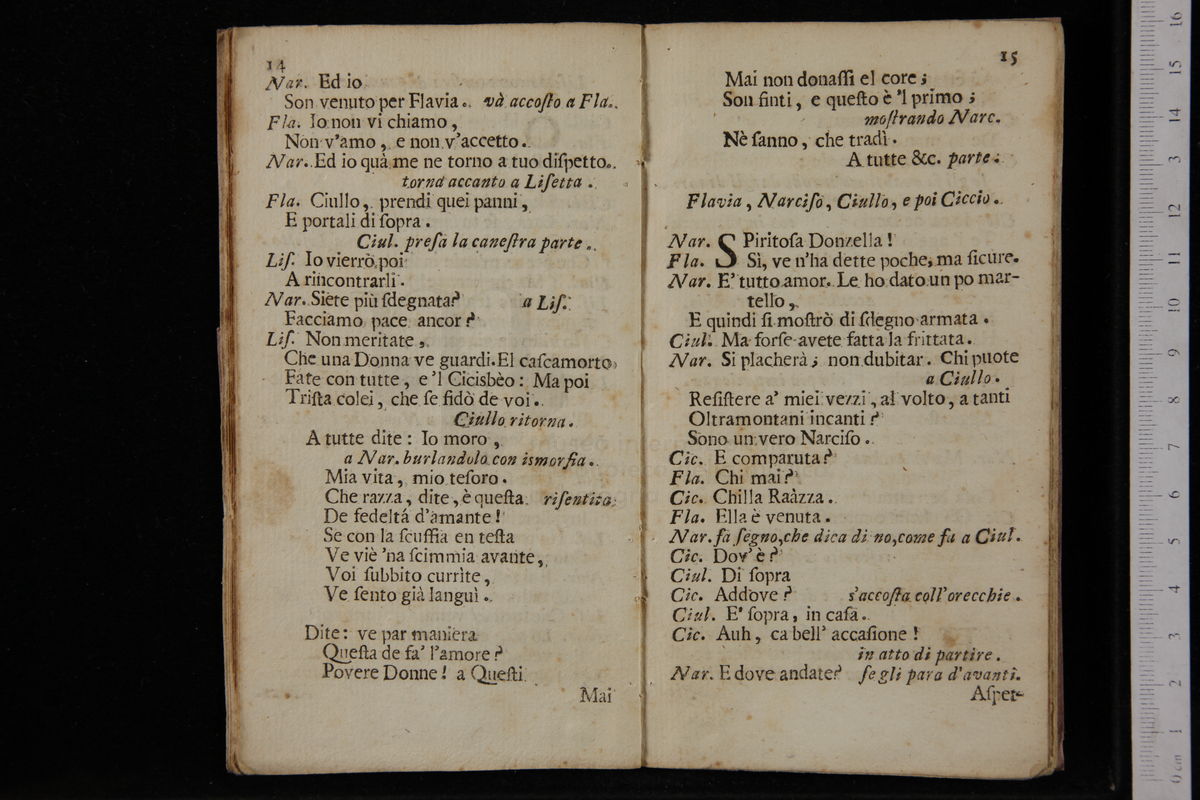 14
Nar. Ed io
Son venuto per Flavia. và accoſto a Fla.
Fla. Io non vi chiamo,
Non v'amo, e non v'accetto.
Nar. Ed io quà me ne torno a tuo diſpetto.
torna accanto a Liſetta.
Fla. Ciullo, prendi quei panni,
E portali di ſopra.
Ciul. preſa la caneſtra parte.
Liſ. Io vierrò poi
A rincontrarli.
Nar. Siete più ſdegnata? a Liſ.
Facciamo pace ancor?
Liſ. Non meritate,
Che una Donna ve guardi. El caſcamorto
Fate con tutte, e 'l Cicisbèo: Ma poi
Triſta colei, che ſe fidò de voi.
Ciullo ritorna.
A tutte dite: Io moro,
a Nar. burlandolo con iſmorfia.
Mia vita, mio teſoro.
Che razza, dite, è queſta riſentita
De fedeltá d'amante!
Se con la ſcuffia en teſta
Ve viè 'na ſcimmia avante,
Voi ſubbito currìte,
Ve ſento già languì.
Dite: ve par manièra
Queſta de fa' l'amore?
Povere Donne! a Queſti
Mai
15
Mai non donaſſi el core;
Son finti, e queſto è 'l primo;
moſtrando Narc.
Nè ſanno, che tradì.
A tutte &c. parte.
Flavia, Narciſo, Ciullo, e poi Ciccio.
Nar. SPiritoſa Donzella!
Fla. Sì, ve n'ha dette poche, ma ſicure.
Nar. E' tutto amor. Le ho dato un po mar-
tello,
E quindi ſi moſtrò di ſdegno armata.
Ciul. Ma forſe avete fatta la frittata.
Nar. Si placherà; non dubitar. Chi puote
a Ciullo.
Reſiſtere a' miei vezzi, al volto, a tanti
Oltramontani incanti?
Sono un vero Narciſo.
Cic. E comparuta?
Fla. Chi mai?
Cic. Chilla Raàzza.
Fla. Ella è venuta.
Nar. fa ſegno, che dica di no, come fa a Ciul.
Cic. Dov' è?
Ciul. Di ſopra
Cic. Addòve? s'accoſta coll'orecchie.
Ciul. E' ſopra, in caſa.
Cic. Auh, ca bell' accaſione!
in atto di partire.
Nar. E dove andate? ſe gli para d'avanti.
Aſpet-